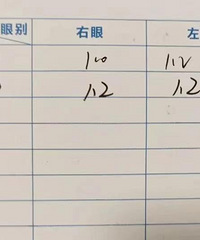 眼别 右眼 左
1.0 1.2
1.2 1.2